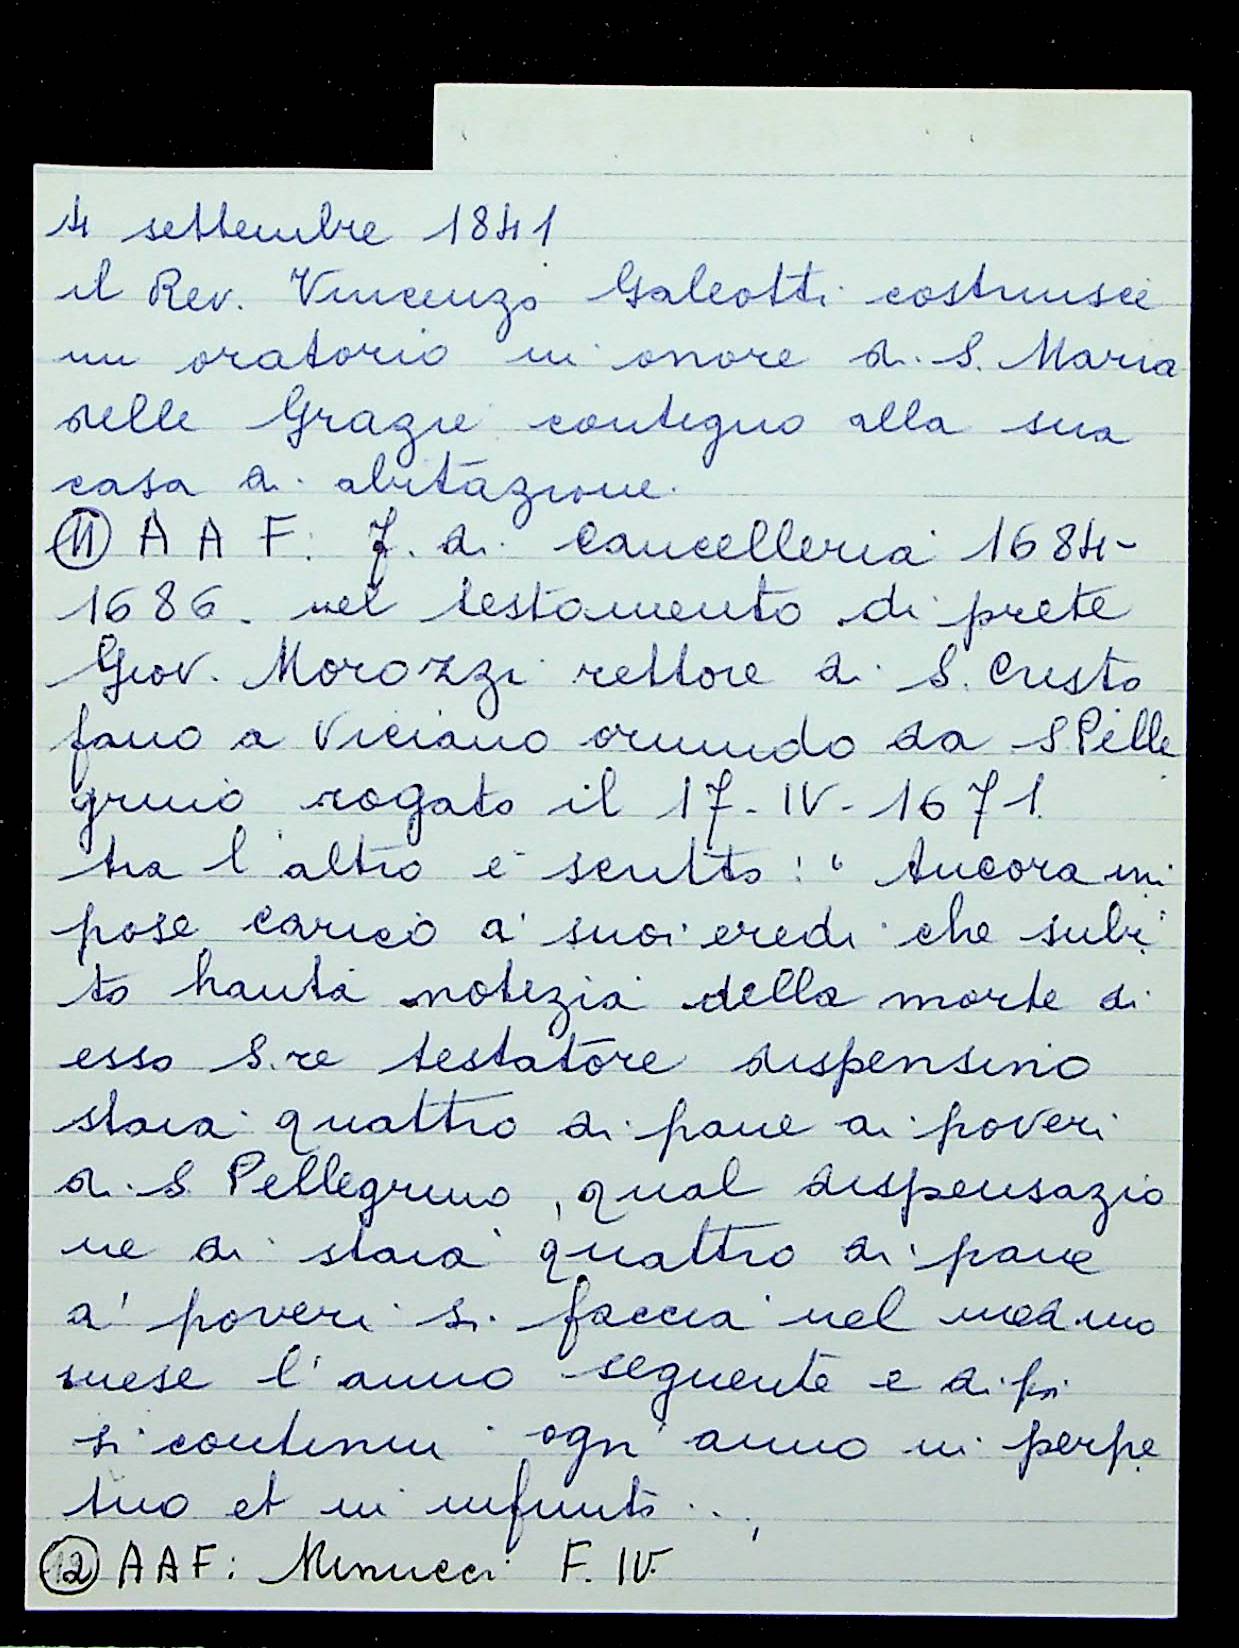 4 settembre 1841
il Rev. Vincenzo Galeotti costruisce
un oratorio in onore di S. Maria
delle Grazie contiguo alla sua
casa di abitazione.
(11) A A F: F. di Cancelleria 1684-
1686. nel testamento di prete
Giov. Morozzi rettore di S. Cristo
fano a Viciano oriundo da S Pelle
grino rogato il 17-IV-1671.
tra l'altro è scritto: "Ancora im
pose carico a' suoi eredi che subi
to hauta notizia della morte di
esso S.re testatore dispensino
staia quattro di pane ai poveri
di S Pellegrino, qual dispensazio
ne di staia quattro di pane
a' poveri si faccia nel med.mo
mese l'anno seguente e di poi
si continui ogni anno in perpe
tuo et in infinito...
(12) AAF: Minucci F. IV.